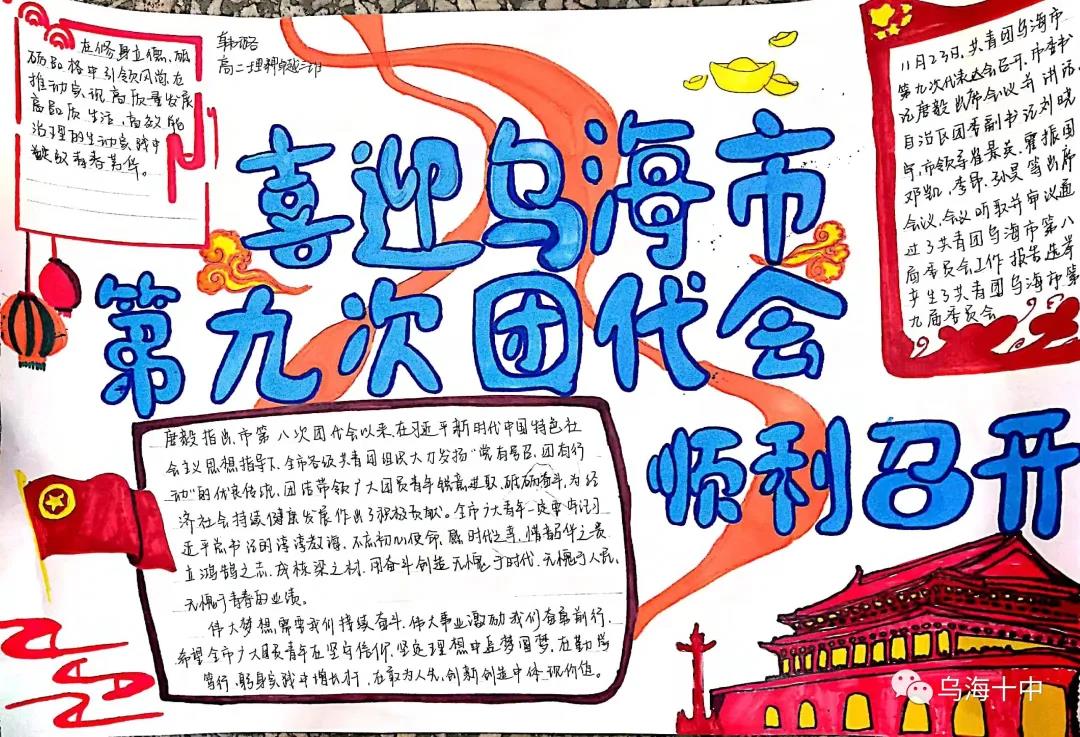 在修身立德、砥
砺品格中引领风尚,在
推动实现高质量发展
高品质生活,高效能
治理的生动实践中
绽放青春芳华。
高二理科卓越
喜迎乌海市
第九次团代会
顺利召开
11月23日,共青团乌海市
第九次代表大会召开,市委书
记唐毅出席会议并讲话,
自治区团委副书记刘晓
市领导崔景英、霍振国
邓凯,李昂,孙昊等出席
会议,会议听取并审议通
过了共青团乌海市第八
届委员会工作报告选举
产生了共青团乌海市第
九届委员会
唐毅指出,市第八次团代会以来,在习近平新时代中国特色社
会主义思想指导下,全市各级共青团组织大力发扬“党有号召,团有行
动”的优良传统,团结带领广大团员青年锐意进取,砥砺奋斗,为经
济社会持续健康发展作出了积极贡献。全市广大青年一定要牢记习
近平总书记的谆谆教诲,不忘初心使命,感时代之幸,惜韶华之晨
立鸿鹄之志,成栋梁之材,用奋斗创造无愧于时代,无愧于人民,
无愧于青春的业绩。
伟大梦想需要我们持续奋斗,伟大事业激励我们奋勇前行,
希望全市广大团员青年在坚守信仰,坚定理想中追梦圆梦,在勤学
笃行,躬身实践中增长才干,在敢为人先,创新创造中体现价值。
乌海十中